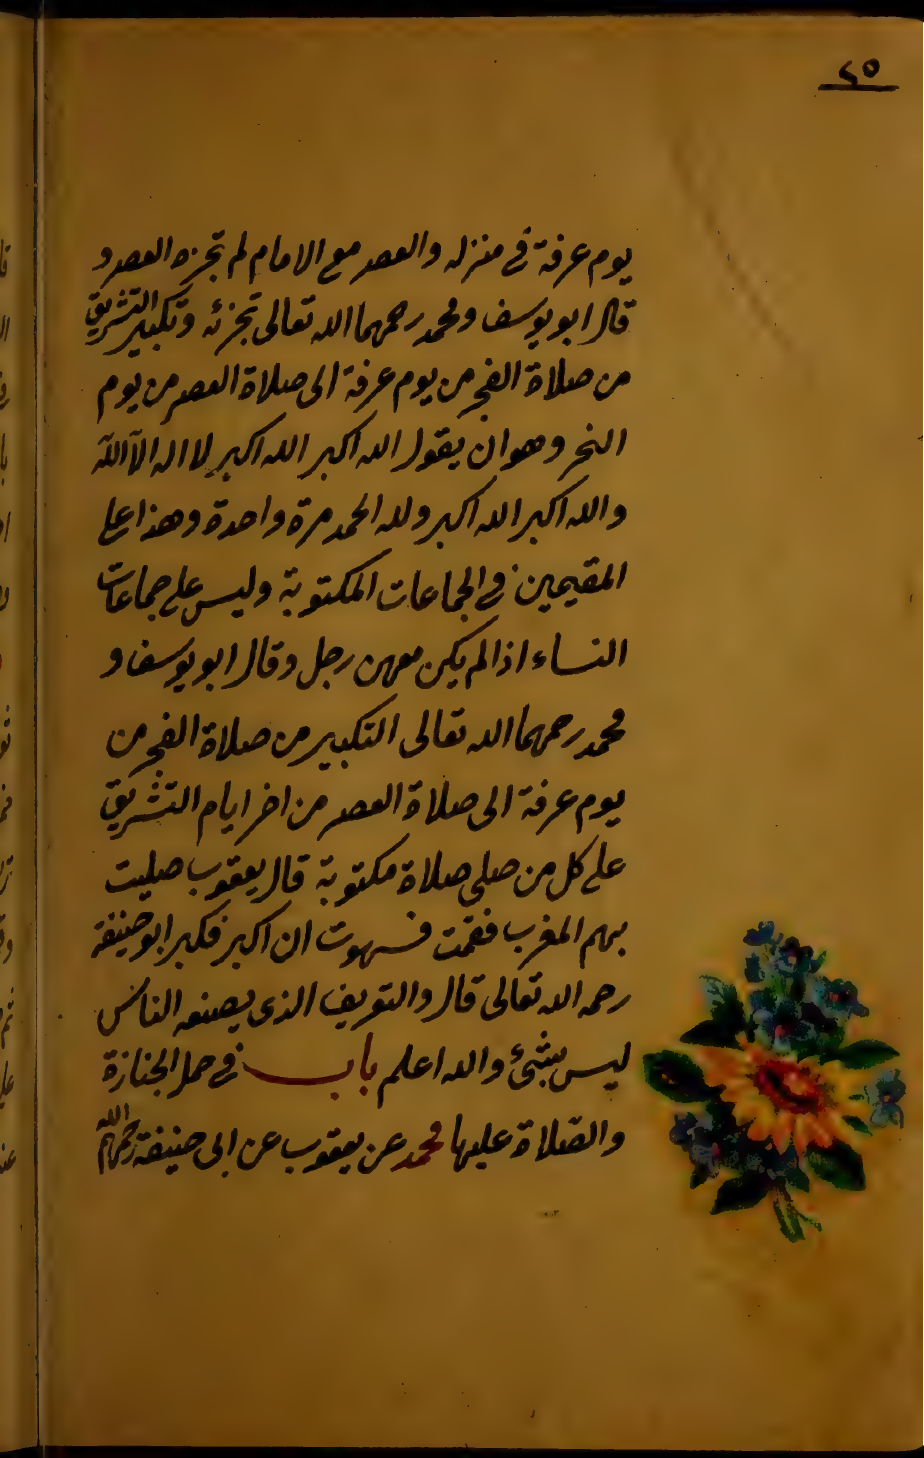 ٢٥
يوم عرفة في منزله والعصر مع الامام لم تجزه العصر و
قال ابو يوسف ومحمد رحمهما الله تعالى تجزئه وتكبير التشريق
من صلاة الفجر من يوم عرفة الى صلاة العصر من يوم
النحر وهو ان يقول الله اكبر الله اكبر لا اله الا الله
والله اكبر الله اكبر ولله الحمد مرة واحدة وهذا على
المقيمين في الجماعات المكتوبة وليس على جماعات
النساء اذا لم يكن معهن رجل وقال ابو يوسف و
محمد رحمهما الله تعالى التكبير من صلاة الفجر من
يوم عرفة الى صلاة العصر من اخر ايام التشريق
على كل من صلى صلاة مكتوبة قال يعقوب صليت
بهم المغرب فقمت فسهوت ان اكبر فكبر ابو حنيفة
رحمه الله تعالى قال والتعريف الذى يصنعه الناس
ليس بشئ والله اعلم باب في حمل الجنازة
والصّلاة عليها محمد عن يعقوب عن ابى حنيفة رحمهم الله